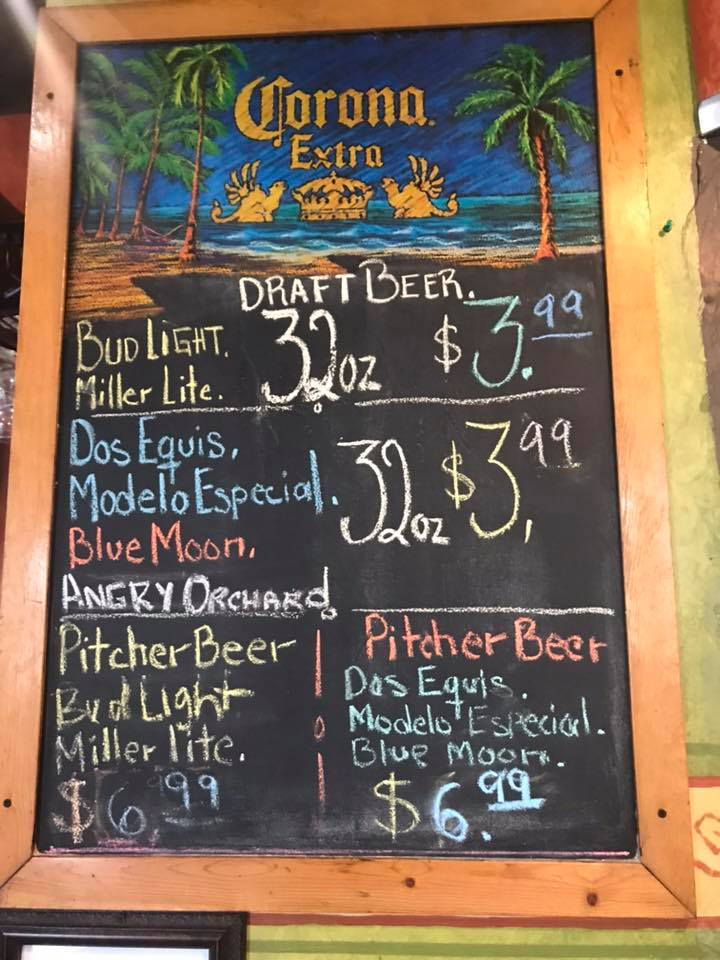 Corona
Extra
DRAFT BEER.
BUD LIGHT.
Miller Lite.
32oz $3.99
Dos Equis.
Modelo Especial.
Blue Moon.
ANGRY ORCHARD.
32oz $3,99
Pitcher Beer
Bud Light
Miller lite.
$6 99
Pitcher Beer
Dos Equis.
Modelo Especial.
Blue Moon.
$6.99